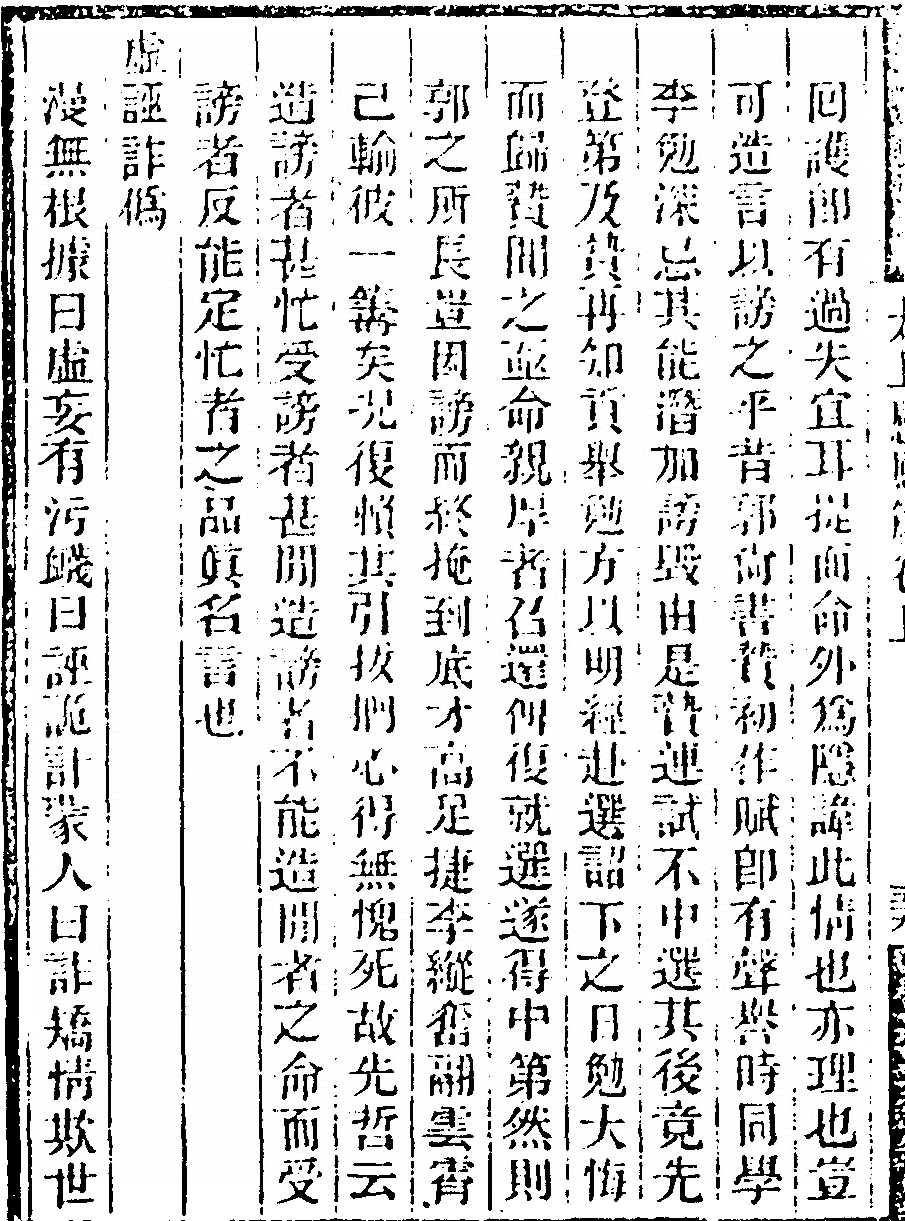 回護即有過失宜耳提面命外爲隱諱此情也亦理也豈
可造言以謗之平昔郭尚書贄初作賦即有聲譽時同學
李勉深忌其能潛加謗毀由是贄連試不中選其後竟先
登第及贄再知貢舉勉方以明經赴選詔下之日勉大悔
而歸贄聞之亟命親厚者召還俾復就選遂得中第然則
郭之所長豈因謗而終掩到底才高足捷李縱奮翮雲霄
己輸彼一籌矣況復賴其引拔捫心得無愧死故先哲云
造謗者甚忙受謗者甚閒造謗者不能造閒者之命而受
謗者反能定忙者之品眞名言也
虛誣詐僞
漫無根據曰虛妄有污衊曰誣詭計蒙人曰詐矯情欺世